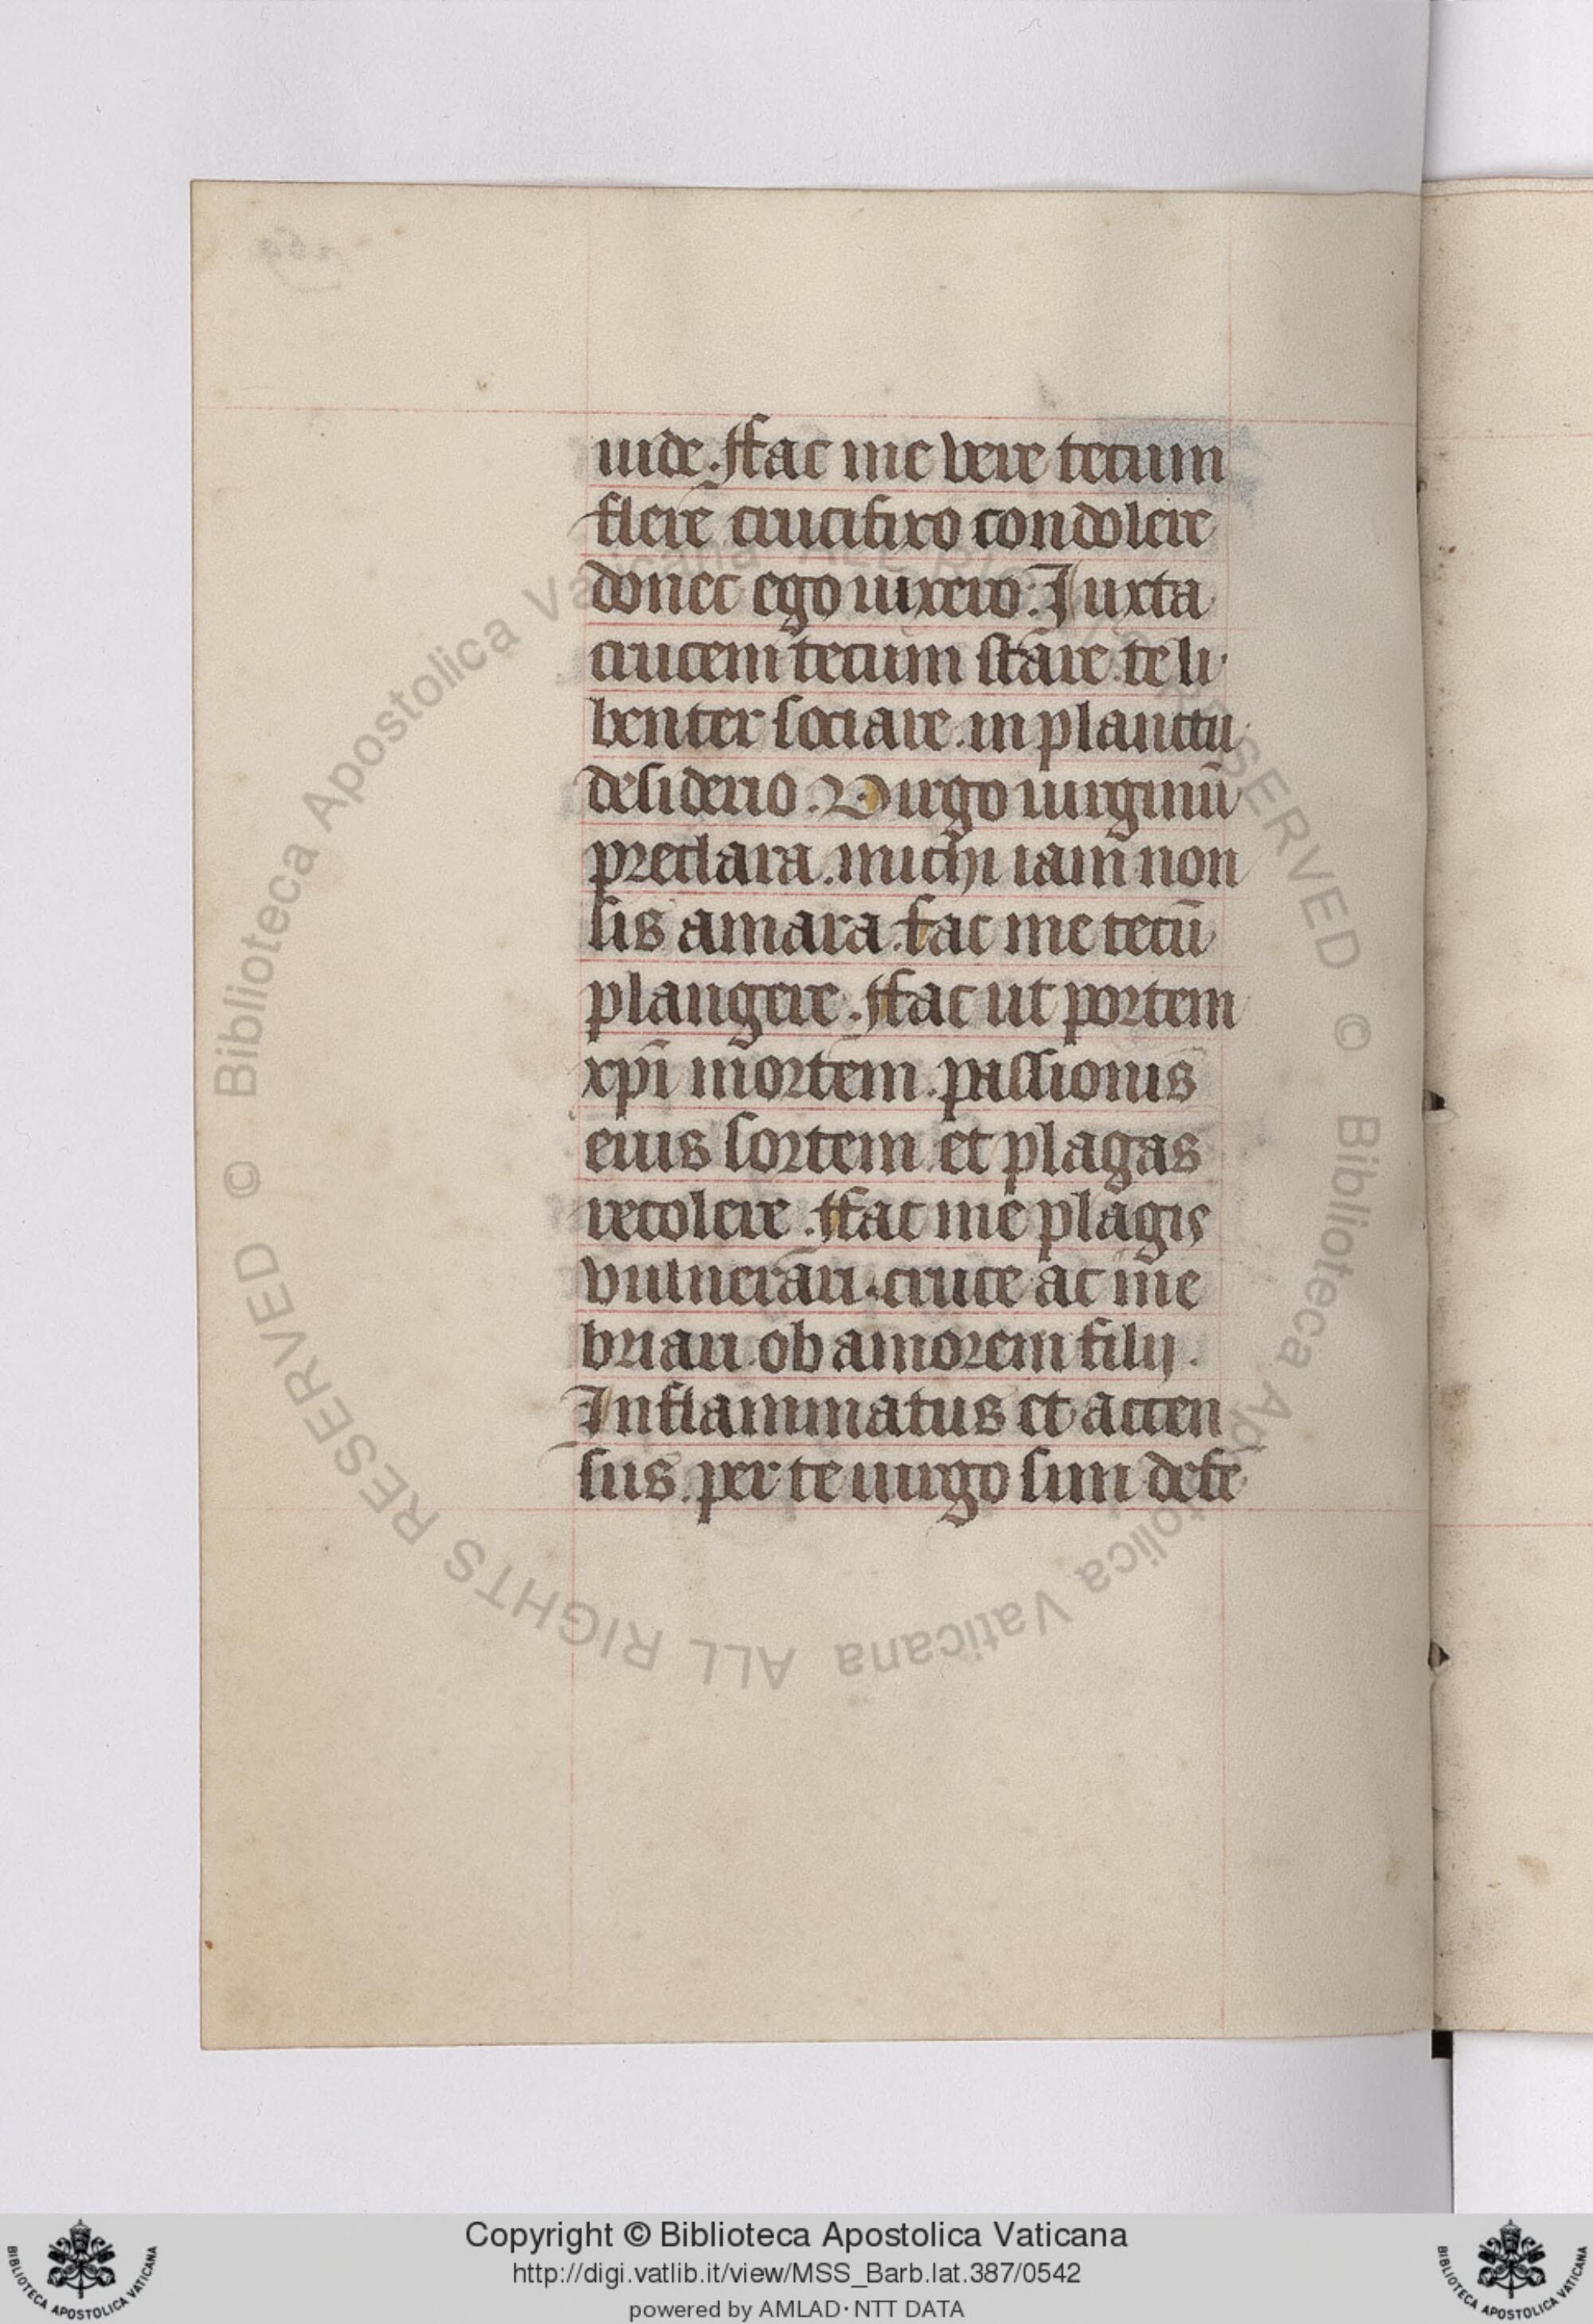 uide. ffac me vere tecum
flere crucifixo condolere
donec ego uixero. Iuxta
crucem tecum stare. te li
benter sociare. in planctu
desiderio. Virgo uirginū
preclara. michi iam non
sis amara. fac me tecū
plangere. ffac ut portem
xp̄i mortem. passionis
eius sortem. et plagas
recolere. ffac me plagis
vulnerari. cruce ac me
briari. ob amorem filij.
Inflammatus et accen
sus. per te uirgo sim defe
© Biblioteca Apostolica Vaticana ALL RIGHTS RESERVED © Biblioteca Apostolica Vaticana ALL RIGHTS RESERVED
Copyright © Biblioteca Apostolica Vaticana
http://digi.vatlib.it/view/MSS_Barb.lat.387/0542
powered by AMLAD·NTT DATA
BIBLIOTECA APOSTOLICA VATICANA
BIBLIOTECA APOSTOLICA VATICANA